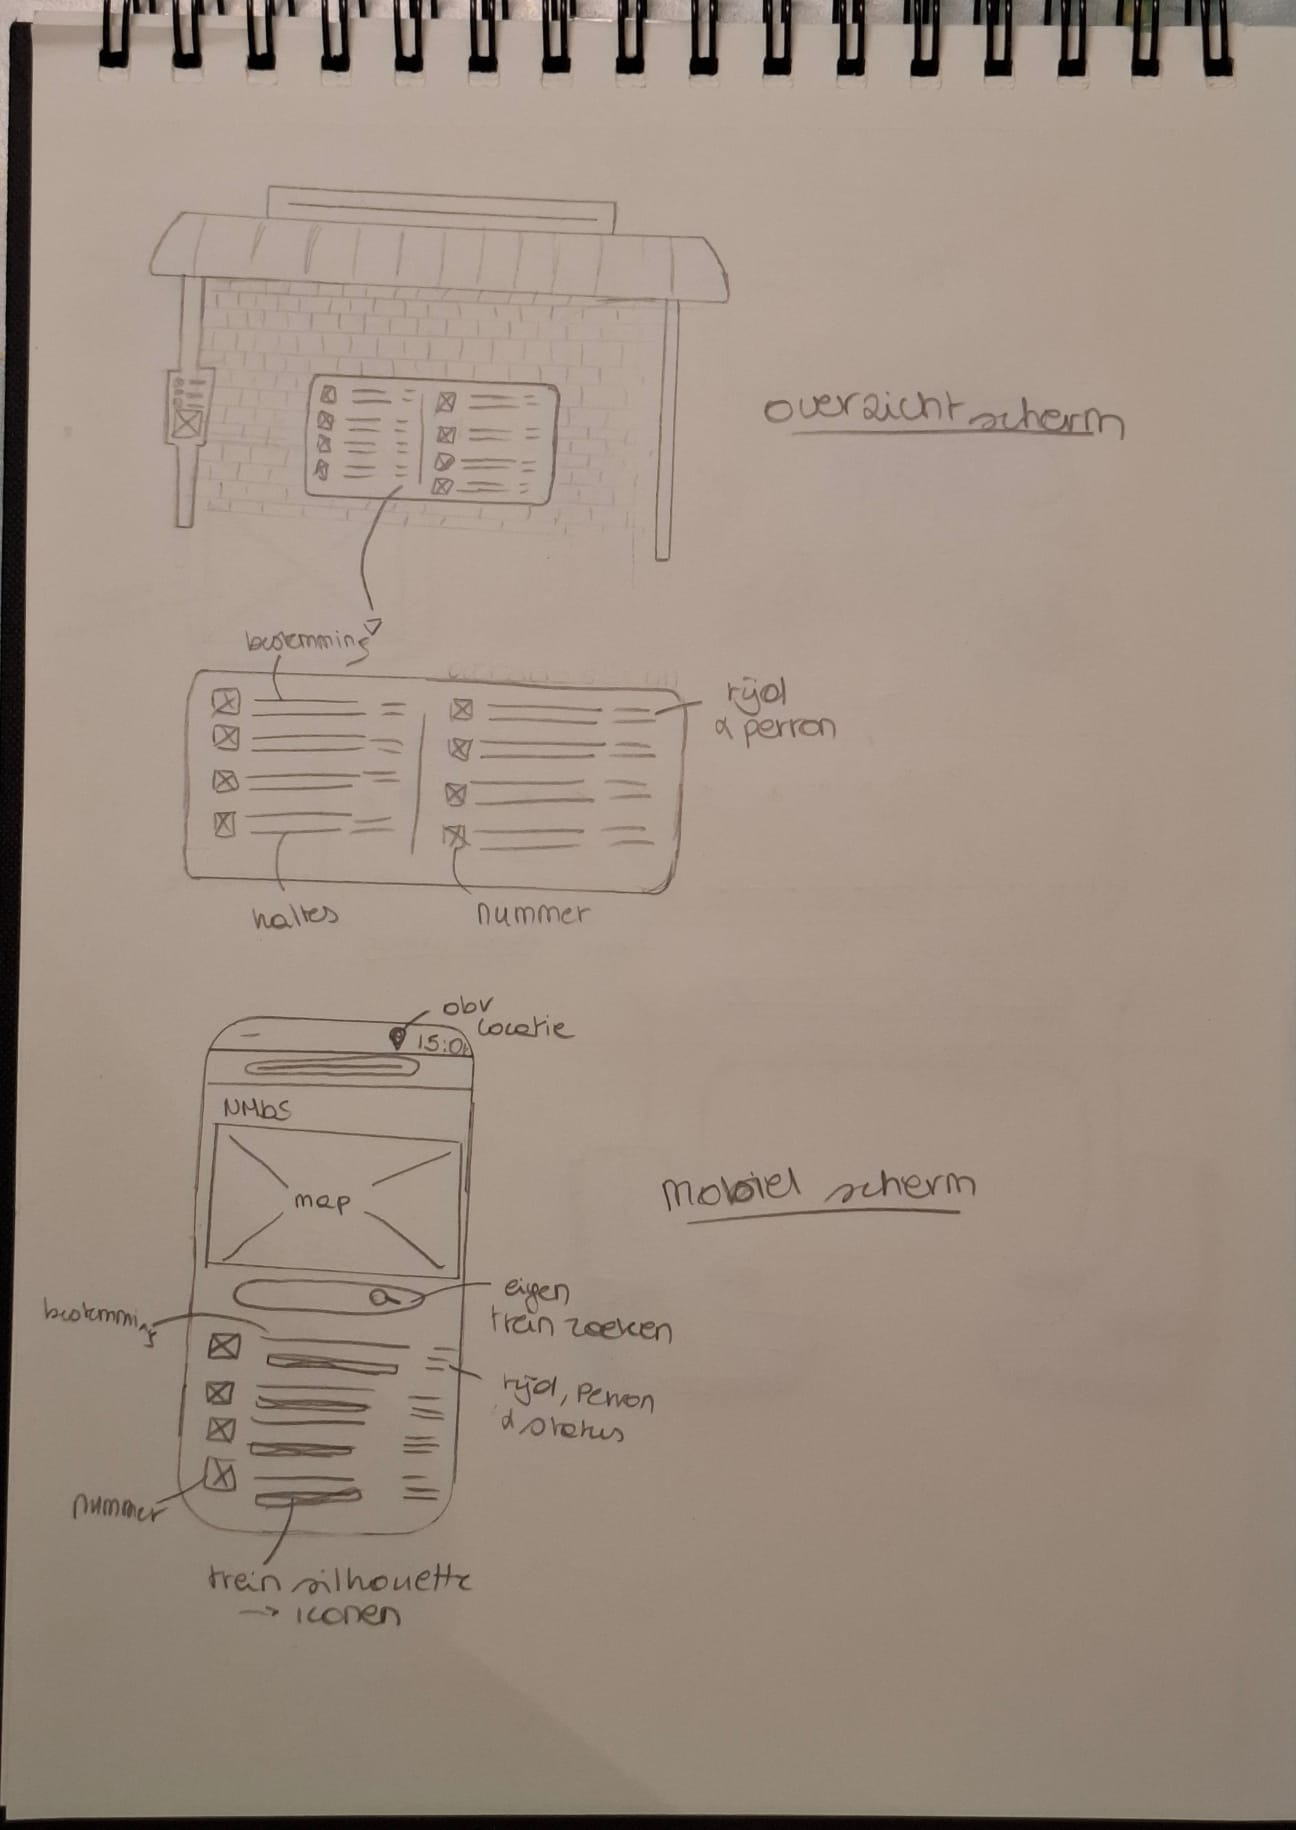 overzicht scherm
bestemming
rijd
& perron
haltes
nummer
obv
locatie
15:0
NMbS
map
mobiel scherm
eigen
trein zoeken
bestemming
rijd, perron
& status
nummer
trein silhouette
→ iconen